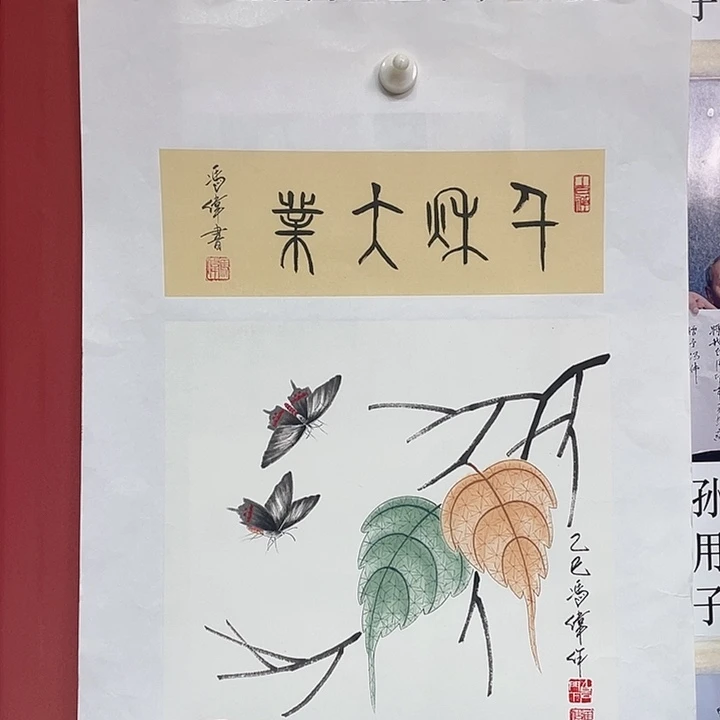 千秋大業
馮偉書
乙巳馮偉作
子
孙用子